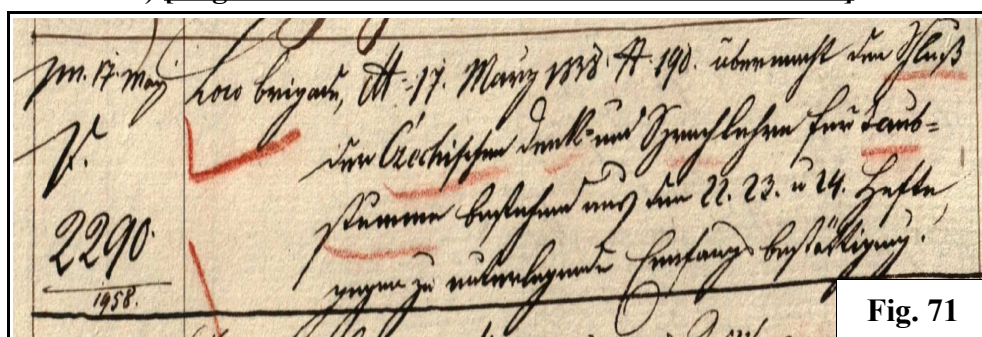 pr. 17. May
Loco brigade, dt. 17. Marz 1838. N. 190. übermacht den Schluß
der Czechischen Denk- und Sprachlehre für Taub=
stumme bestehend aus den 22. 23. u 24. Hefte,
gegen zu unterlegende Empfangsbestättigung.
2290
1958.
Fig. 71